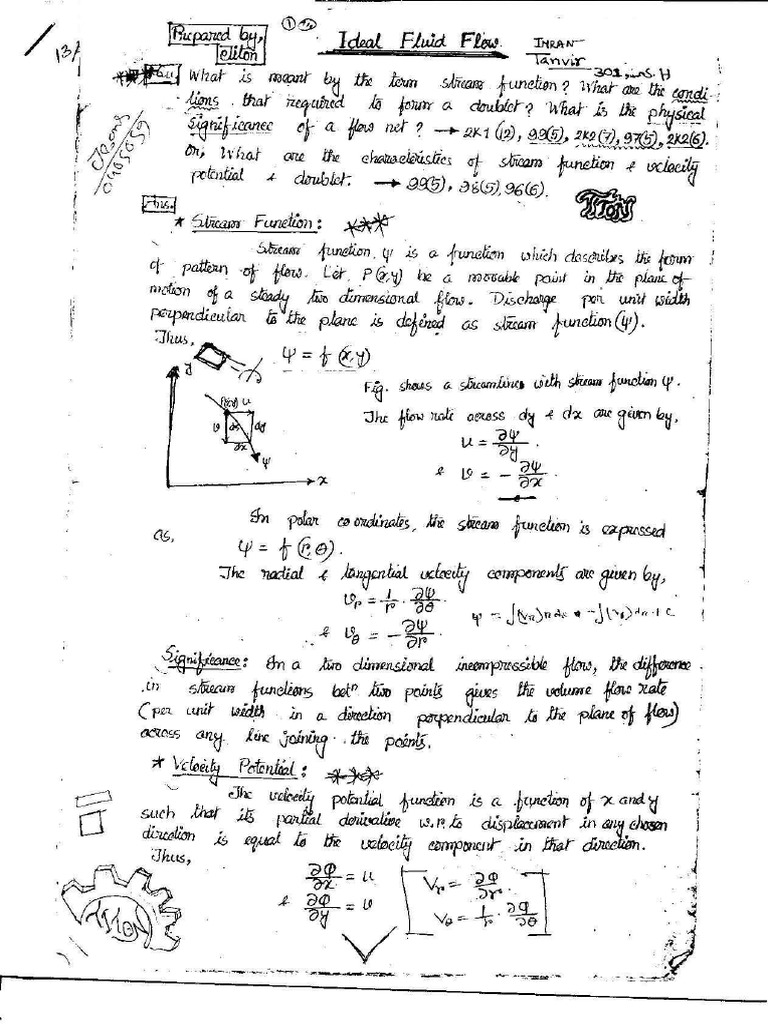 Prepared by, eliton
①
Ideal Fluid Flow.
IMRAN
Tanvir
301, H
13/
What is meant by the term stream function? What are the condi-
tions that required to form a doublet? What is the physical
significance of a flow net? → 2K1 (12), 99(5), 2K2(7), 97(5), 2K2(6).
or, What are the characteristics of stream function & velocity
potential & doublet. → 99(5), 98(5), 96(6).
0405059
TITON
Ans.
* Stream Function:
Stream function, ψ is a function which describes the form
of pattern of flow. Let P(x,y) be a movable point in the plane of
motion of a steady two dimensional flow. Discharge per unit width
perpendicular to the plane is defined as stream function (ψ).
Thus,
ψ = f (x,y)
y
P(x,y) u
v ds dy
∂x
ψ
x
Fig. shows a streamlines with stream function ψ.
The flow rate across dy & dx are given by,
u = ∂ψ/∂y
& v = - ∂ψ/∂x
In polar coordinates, the stream function is expressed
as,
ψ = f (r,θ).
The radial & tangential velocity components are given by,
vr = 1/r · ∂ψ/∂θ
& vθ = - ∂ψ/∂r
Significance: In a two dimensional incompressible flow, the difference
in stream functions betn two points gives the volume flow rate
(per unit width in a direction perpendicular to the plane of flow)
across any line joining the points.
* Velocity Potential:
The velocity potential function is a function of x and y
such that its partial derivative w.r. to displacement in any chosen
direction is equal to the velocity component in that direction.
Thus,
∂Φ/∂x = u
& ∂Φ/∂y = v
Vr = ∂Φ/∂r
Vθ = 1/r · ∂Φ/∂θ
TITON